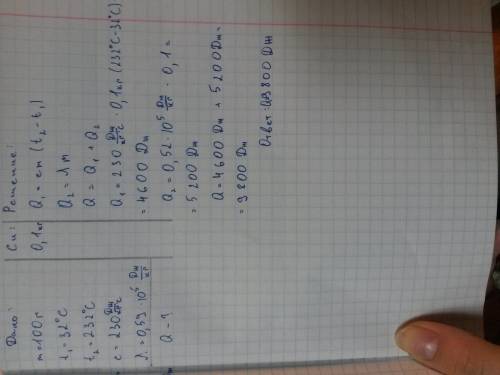 Дано:
m=100г
t₁=32°C
t₂=232°C
c=230 Дж/кг°C
λ=0,59·10⁵ Дж/кг
Q-?
Си:
0,1кг
Решение:
Q₁ = cm (t₂-t₁)
Q₂ = λm
Q = Q₁ + Q₂
Q₁ = 230 Дж/кг°C · 0,1кг (232°C-32°C)
= 4600 Дж
Q₂ = 0,52·10⁵ Дж/кг · 0,1 =
= 5200 Дж
Q = 4600 Дж + 5200 Дж =
= 9800 Дж
Ответ: Q=9800 Дж